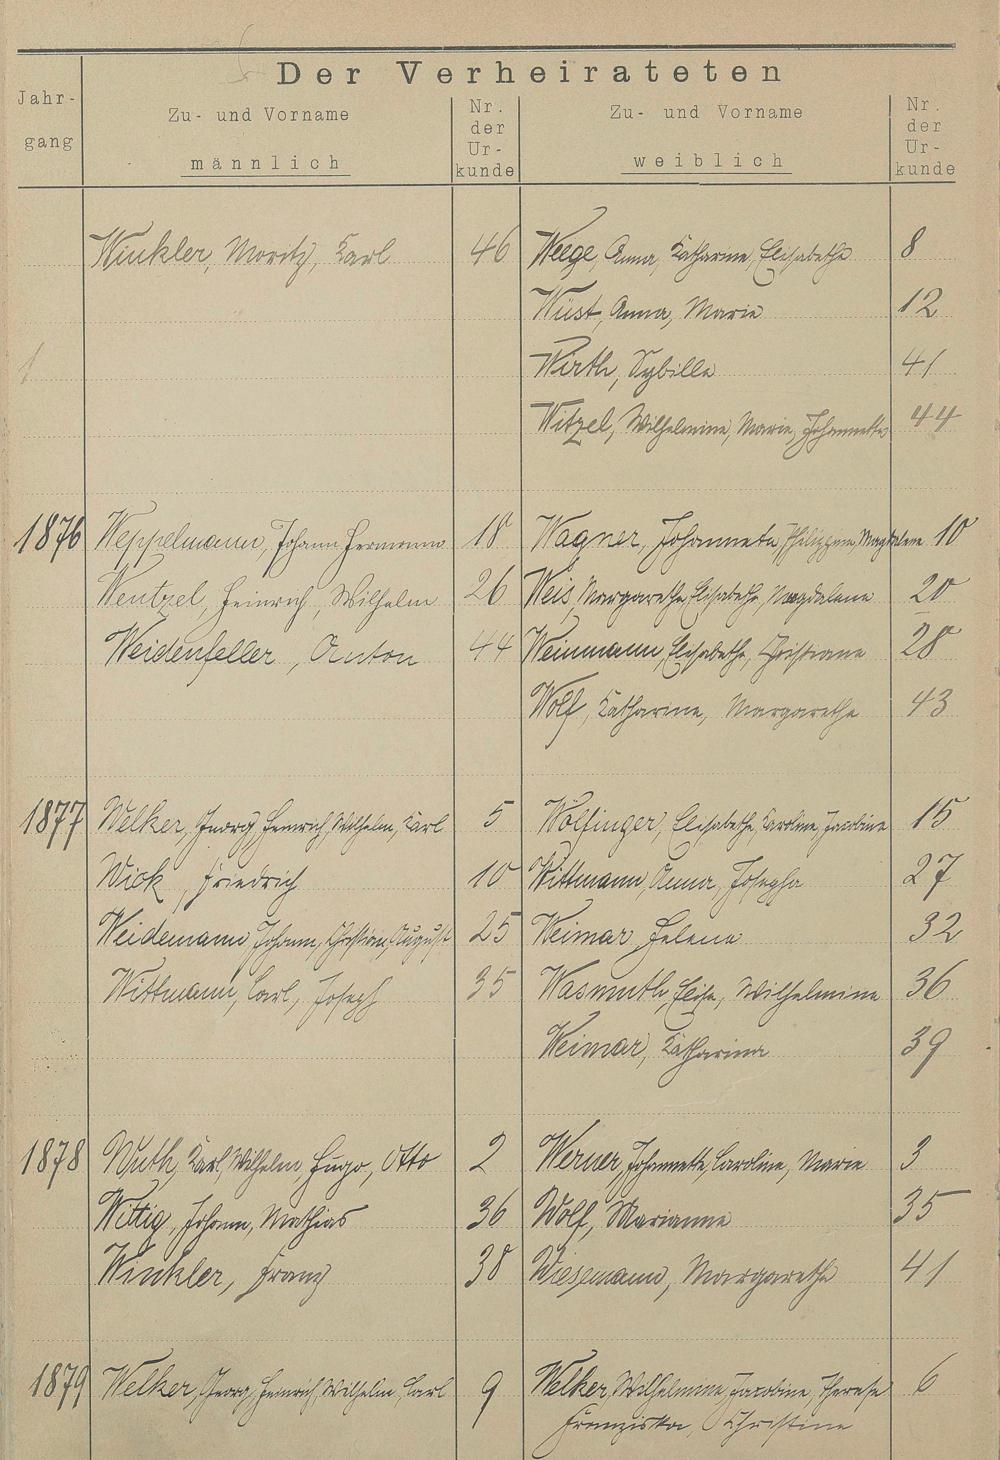 Der Verheirateten
Jahr-
gang
Zu- und Vorname
männlich
Nr.
der
Ur-
kunde
Zu- und Vorname
weiblich
Nr.
der
Ur-
kunde
Winkler, Moritz, Karl 46 Weege, Anna, Katharine, Elisabethe 8
Wüst, Anna, Marie 12
Wirth, Sybilla 41
Witzel, Wilhelmine, Marie, Johannette 44
1876 Weppelmann, Johann Hermann 18 Wagner, Johanneta Philippine Magdalene 10
Wentzel, Heinrich, Wilhelm 26 Weis, Margarethe Elisabethe, Magdalena 20
Weidenfeller, Anton 44 Weinmann, Elisabethe, Christiane 28
Wolf, Katharine, Margarethe 43
1877 Welker, Georg, Heinrich, Wilhelm, Karl 5 Wölfinger, Elisabethe, Caroline, Jacobine 15
Wick, Friedrich 10 Wittmann, Anna, Josepha 27
Weidemann Johann, Christian, August 25 Weimar Helena 32
Wittmann, Carl, Joseph 35 Wasmuth, Elise, Wilhelmine 36
Weimar, Katharina 39
1878 Wuth, Karl, Wilhelm, Hugo, Otto 2 Werner, Johannette, Caroline, Marie 3
Wittig, Johann, Mathias 36 Wolf, Marianne 35
Winkler, Franz 38 Wiesemann, Margarethe 41
1879 Welker, Georg, Heinrich, Wilhelm, Carl 9 Welker, Wilhelmine, Jacobine, Therese 6
Franziska, Christine